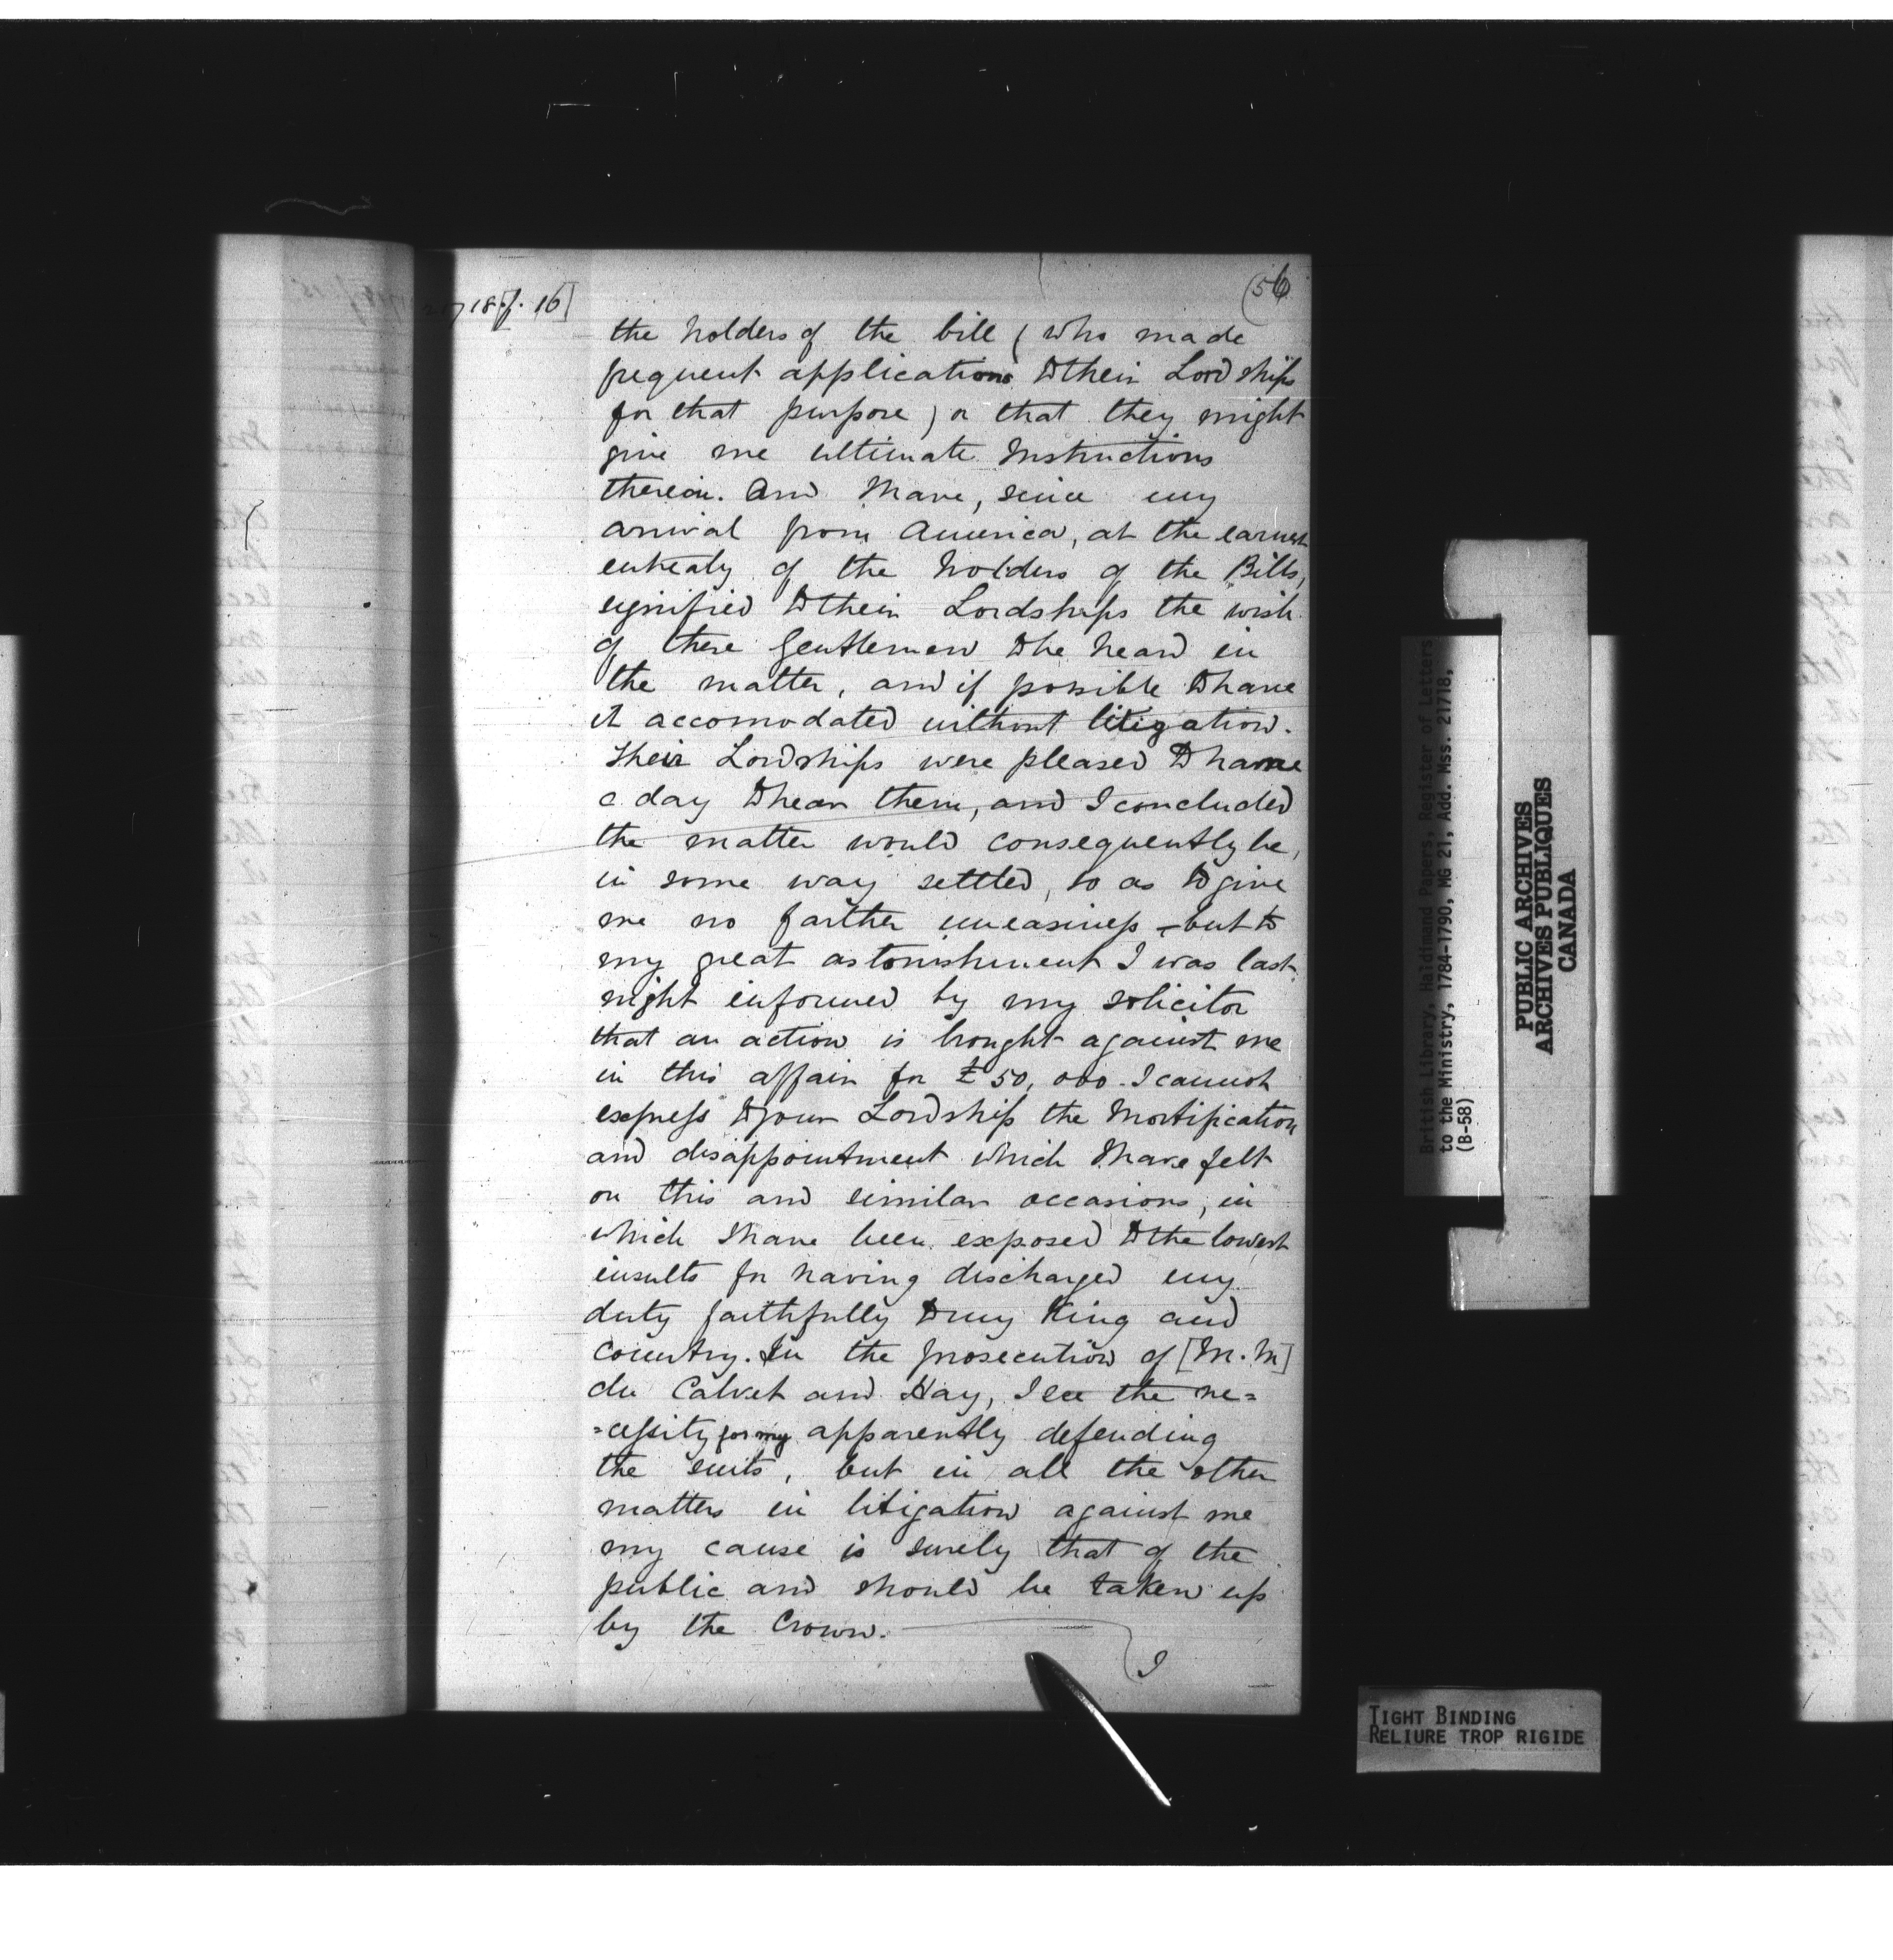 (56
21718 [f. 16]
the holders of the bill (who made
frequent applications to their Lordships
for that purpose) or that they might
give me ultimate Instructions
therein. And I have, since my
arrival from America, at the earnest
entreaty of the holders of the Bills,
signified to their Lordships the wish
of these Gentlemen to be heard in
the matter, and if possible to have
it accomodated without litigation.
Their Lordships were pleased to name
a day to hear them, and I concluded
the matter would consequently be,
in some way settled, so as to give
me no farther uneasiness - but to
my great astonishment I was last
night informed by my solicitor
that an action is brought against me
in this affair for £50,000. I cannot
express to your Lordship the Mortification
and disappointment which I have felt
on this and similar occasions, in
which I have been exposed to the lowest
insults for having discharged my
duty faithfully to my King and
Country. In the prosecution of [M. M]
du Calvet and Hay, I see the ne=
=cessity for my apparently defending
the suits, but in all the other
matters in litigation against me
my cause is surely that of the
public and should be taken up
by the Crown.
I
British Library, Haldimand Papers, Register of Letters
to the Ministry, 1784-1790, MG 21, Add. Mss. 21718,
(B-58)
PUBLIC ARCHIVES
ARCHIVES PUBLIQUES
CANADA
TIGHT BINDING
RELIURE TROP RIGIDE